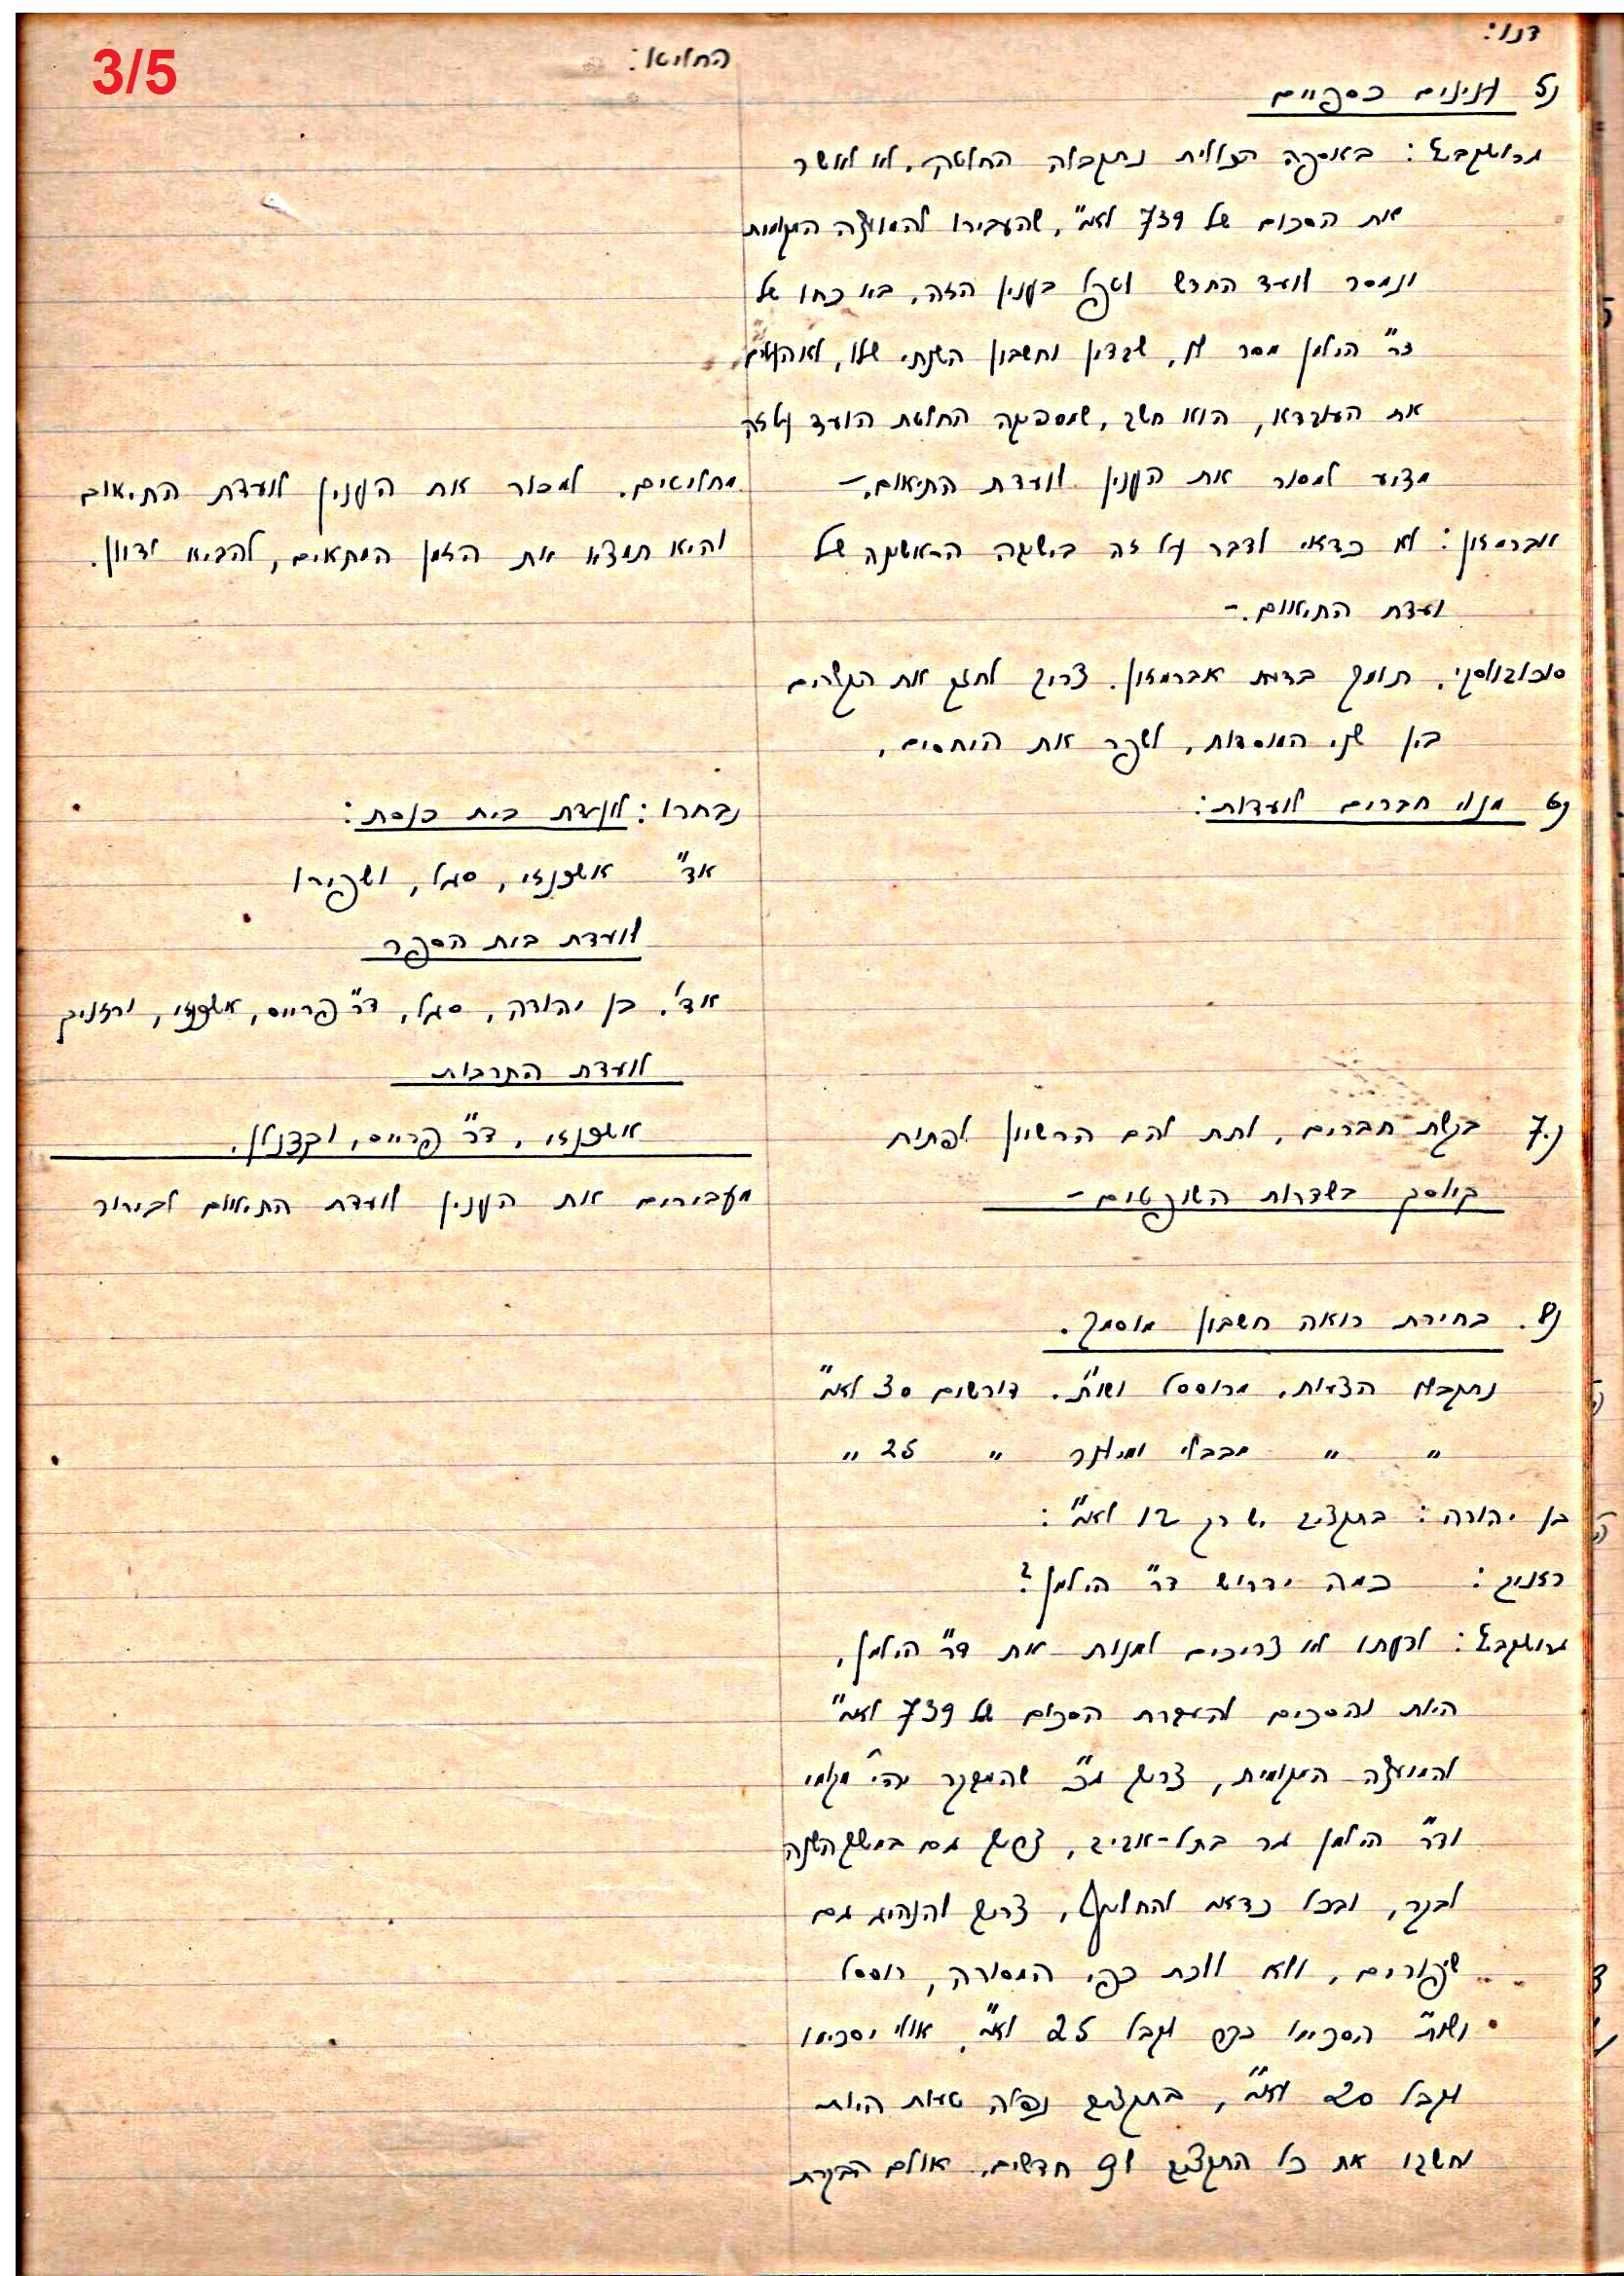 3/5
דנו:
החליטו:
נ5 ענינים כספיים
מרושקבסקי: באספה הכללית נתקבלה החלטה, לא לאשר
את הסכום של 739 לא"י, שהעבירו להמועצה המקומית
ונמסר לועד החדש לטפל בענין הזה, בא כחו של
ד"ר הילמן מסר לו, שבדין וחשבון השנתי שלו, לא העלים
את העובדא, הוא חשב, שמספיקה החלטת הועד על זה
מציע למסור את הענין לועדת התיאום.-
אברמזון: לא כדאי לדבר על זה בישיבה הראשונה של
ועדת התיאום.-
סוכובולסקי. תומך בדעת אברמזון. צריך לחזק את הקשרים
בין שני המוסדות, לשפר את היחסים.
מחליטים. למסור את הענין לועדת התיאום
והיא תמצא את הזמן המתאים, להביא לדיון.
נ6 מנוי חברים לועדות:
נבחרו: לועדת בית כנסת:
אד" אשכנזי, סגל, ושפירו
לועדת בית הספר
אד'. בן יהודה, סגל, ד"ר פרייס, אשכנזי, ורזניק
לועדת התרבות
אשכנזי, ד"ר פרייס, וקצנלן.
נ.7 בקשת חברים, לתת להם הרשיון לפתוח
קיוסק בשדרות השופטים -
מעבירים את הענין לועדת התיאום לבירור
נ8. בחירת רואה חשבון מוסמך.
נתקבלו הצעות. מרוססל ושות'. דורשים 30 לא"י
" " מבבלי ומילנר " 25 "
בן יהודה: בתקציב יש רק 12 לא"י:
רזניק: כמה ידרוש ד"ר הילמן?
מרושקבסקי: לדעתו לא צריכים למנות את ד"ר הילמן,
היות והסכים להעברת הסכום של 739 לא"י
להמועצה המקומית, צריך ג"כ שהמבקר יהי' מקומי
וד"ר הילמן גר בתל-אביב, צריך גם במשך השנה
לבקר, ובכלל כדאי להחליף, צריך להנהיג גם
שיפורים, ולא ללכת כפי המסורה, רוססל
ושות' הסכימו לקבל 25 לא"י, אולי יסכימו
לקבל 20 לא"י, בתקציב נפלה טעות היות
וחשבו את כל התקציב ל9 חדשים, אולם הבקרת